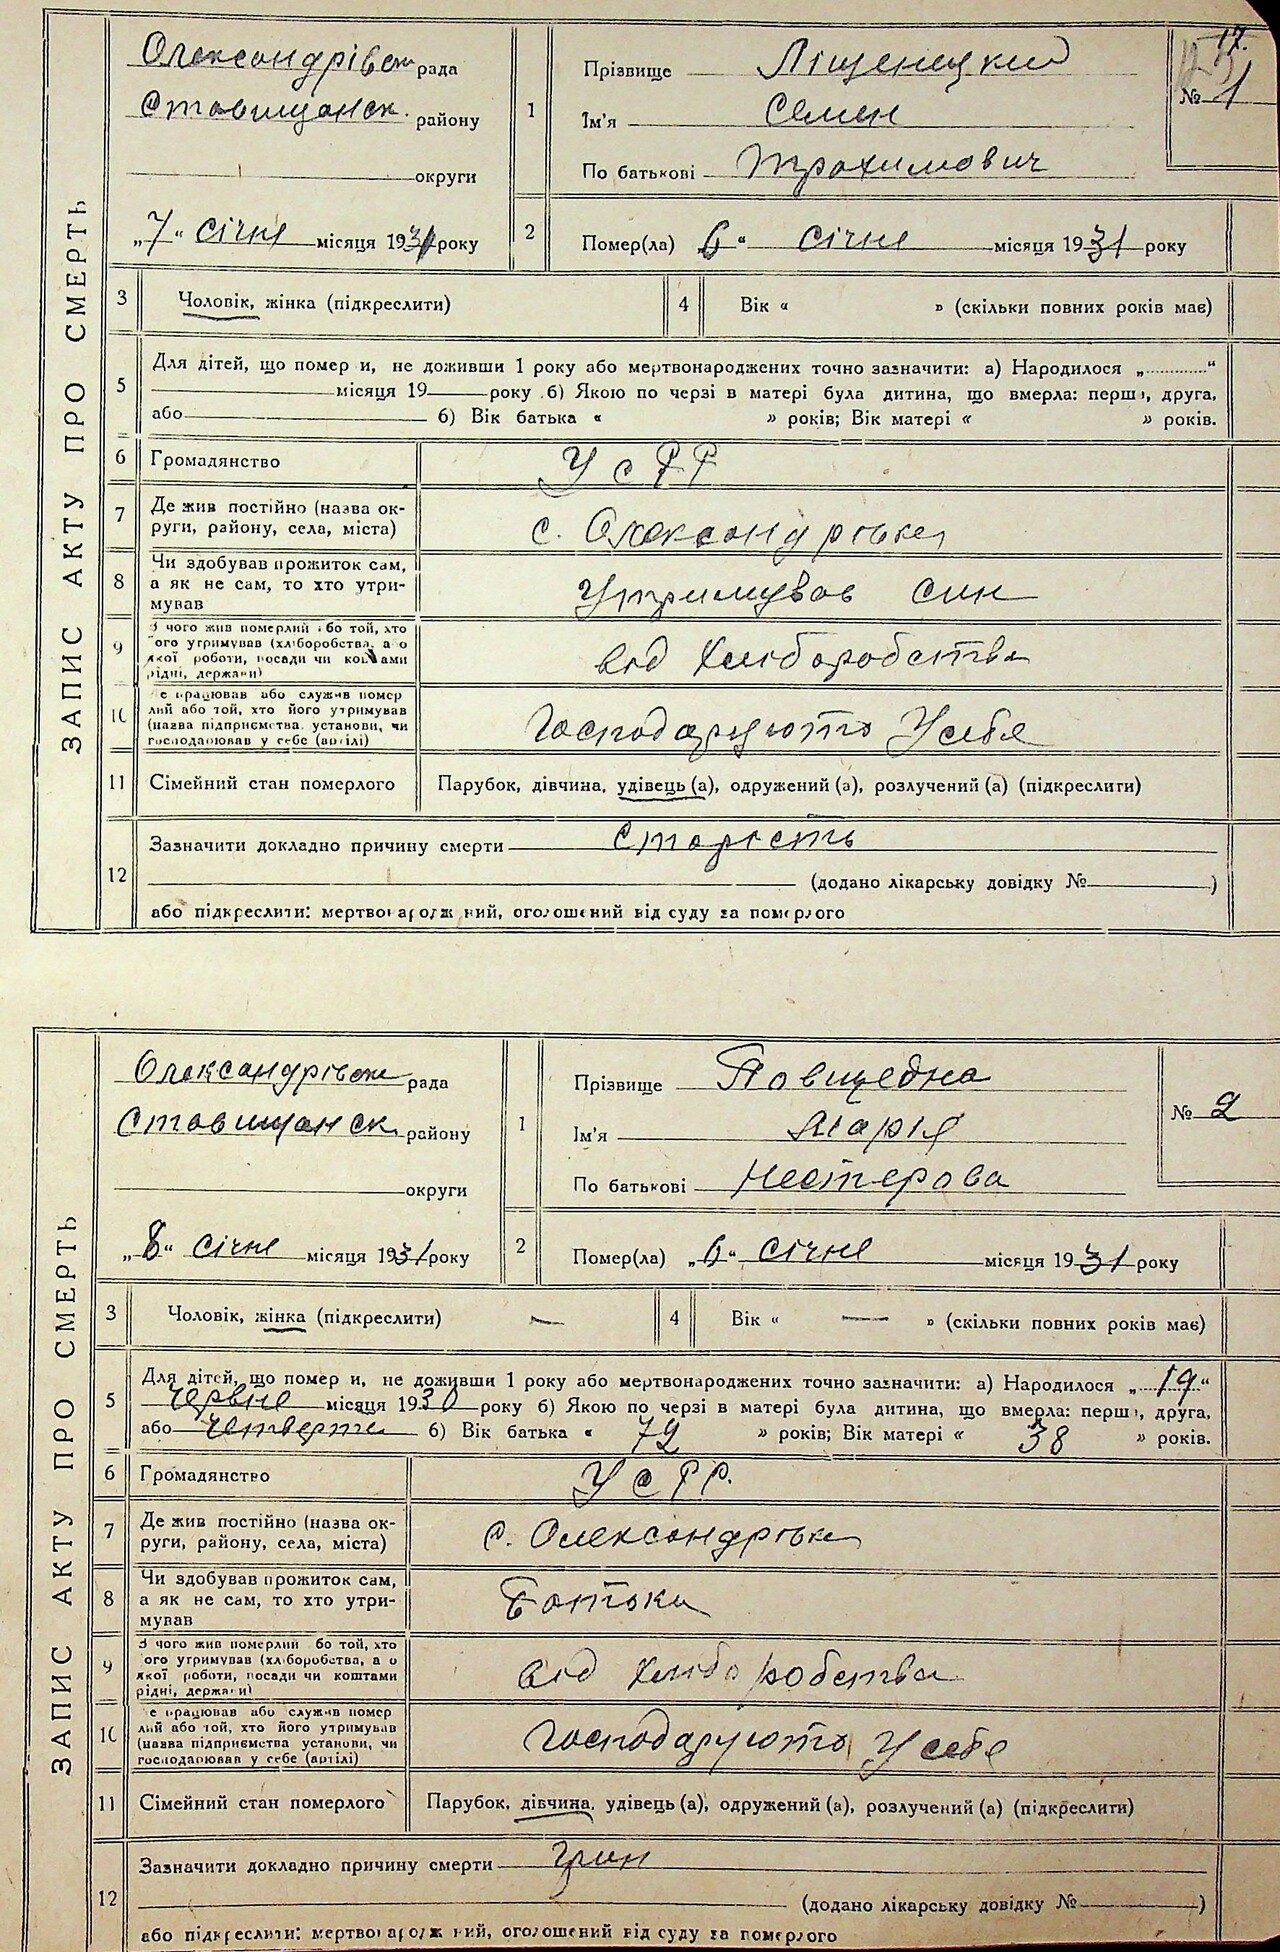 ЗАПИС АКТУ ПРО СМЕРТЬ
Олександрівськ рада
Ставищанськ. району
округи
„7" січня місяця 1931 року
17.
№ 1
1 Прізвище Ліщенецкий
Ім'я Семен
По батькові Трохимович
2 Помер(ла) „6" січня місяця 1931 року
3 Чоловік, жінка (підкреслити)
4 Вік « » (скільки повних років має)
5 Для дітей, що помер и, не доживши 1 року або мертвонароджених точно зазначити: а) Народилося „ “
місяця 19 року б) Якою по черзі в матері була дитина, що вмерла: перша, друга,
або б) Вік батька « » років; Вік матері « » років.
6 Громадянство УСРР
7 Де жив постійно (назва ок-
руги, району, села, міста) с. Олександрівка
8 Чи здобував прожиток сам,
а як не сам, то хто утри-
мував Утримував син
9 З чого жив померлий або той, хто
його утримував (хліборобства, або
якої роботи, посади чи коштами
рідні, держави) від хліборобства
10 Де працював або служив помер
лий або той, хто його утримував
(назва підприємства установи, чи
господарював у себе (артілі) Господарують У себе
11 Сімейний стан померлого Парубок, дівчина, удівець (а), одружений (а), розлучений (а) (підкреслити)
12 Зазначити докладно причину смерти Старість
(додано лікарську довідку № )
або підкреслити: мертвонароджений, оголошений від суду за померлого
ЗАПИС АКТУ ПРО СМЕРТЬ
Олександрівськ рада
Ставищанськ району
округи
„8" січня місяця 1931 року
№ 2
1 Прізвище Повщедна
Ім'я Марія
По батькові Нестерова
2 Помер(ла) „6" січня місяця 1931 року
3 Чоловік, жінка (підкреслити) —
4 Вік « — » (скільки повних років має)
5 Для дітей, що помер и, не доживши 1 року або мертвонароджених точно зазначити: а) Народилося „19“
червня місяця 1930 року б) Якою по черзі в матері була дитина, що вмерла: перша, друга,
або четверта б) Вік батька « 42 » років; Вік матері « 38 » років.
6 Громадянство УСРР.
7 Де жив постійно (назва ок-
руги, району, села, міста) с. Олександрівка
8 Чи здобував прожиток сам,
а як не сам, то хто утри-
мував Батьки
9 З чого жив померлий або той, хто
його утримував (хліборобства, або
якої роботи, посади чи коштами
рідні, держави) від хліборобства
10 Де працював або служив помер
лий або той, хто його утримував
(назва підприємства установи, чи
господарював у себе (артілі) Господарують У себе
11 Сімейний стан померлого Парубок, дівчина, удівець (а), одружений (а), розлучений (а) (підкреслити)
12 Зазначити докладно причину смерти Грип
(додано лікарську довідку № )
або підкреслити: мертвонароджений, оголошений від суду за померлого